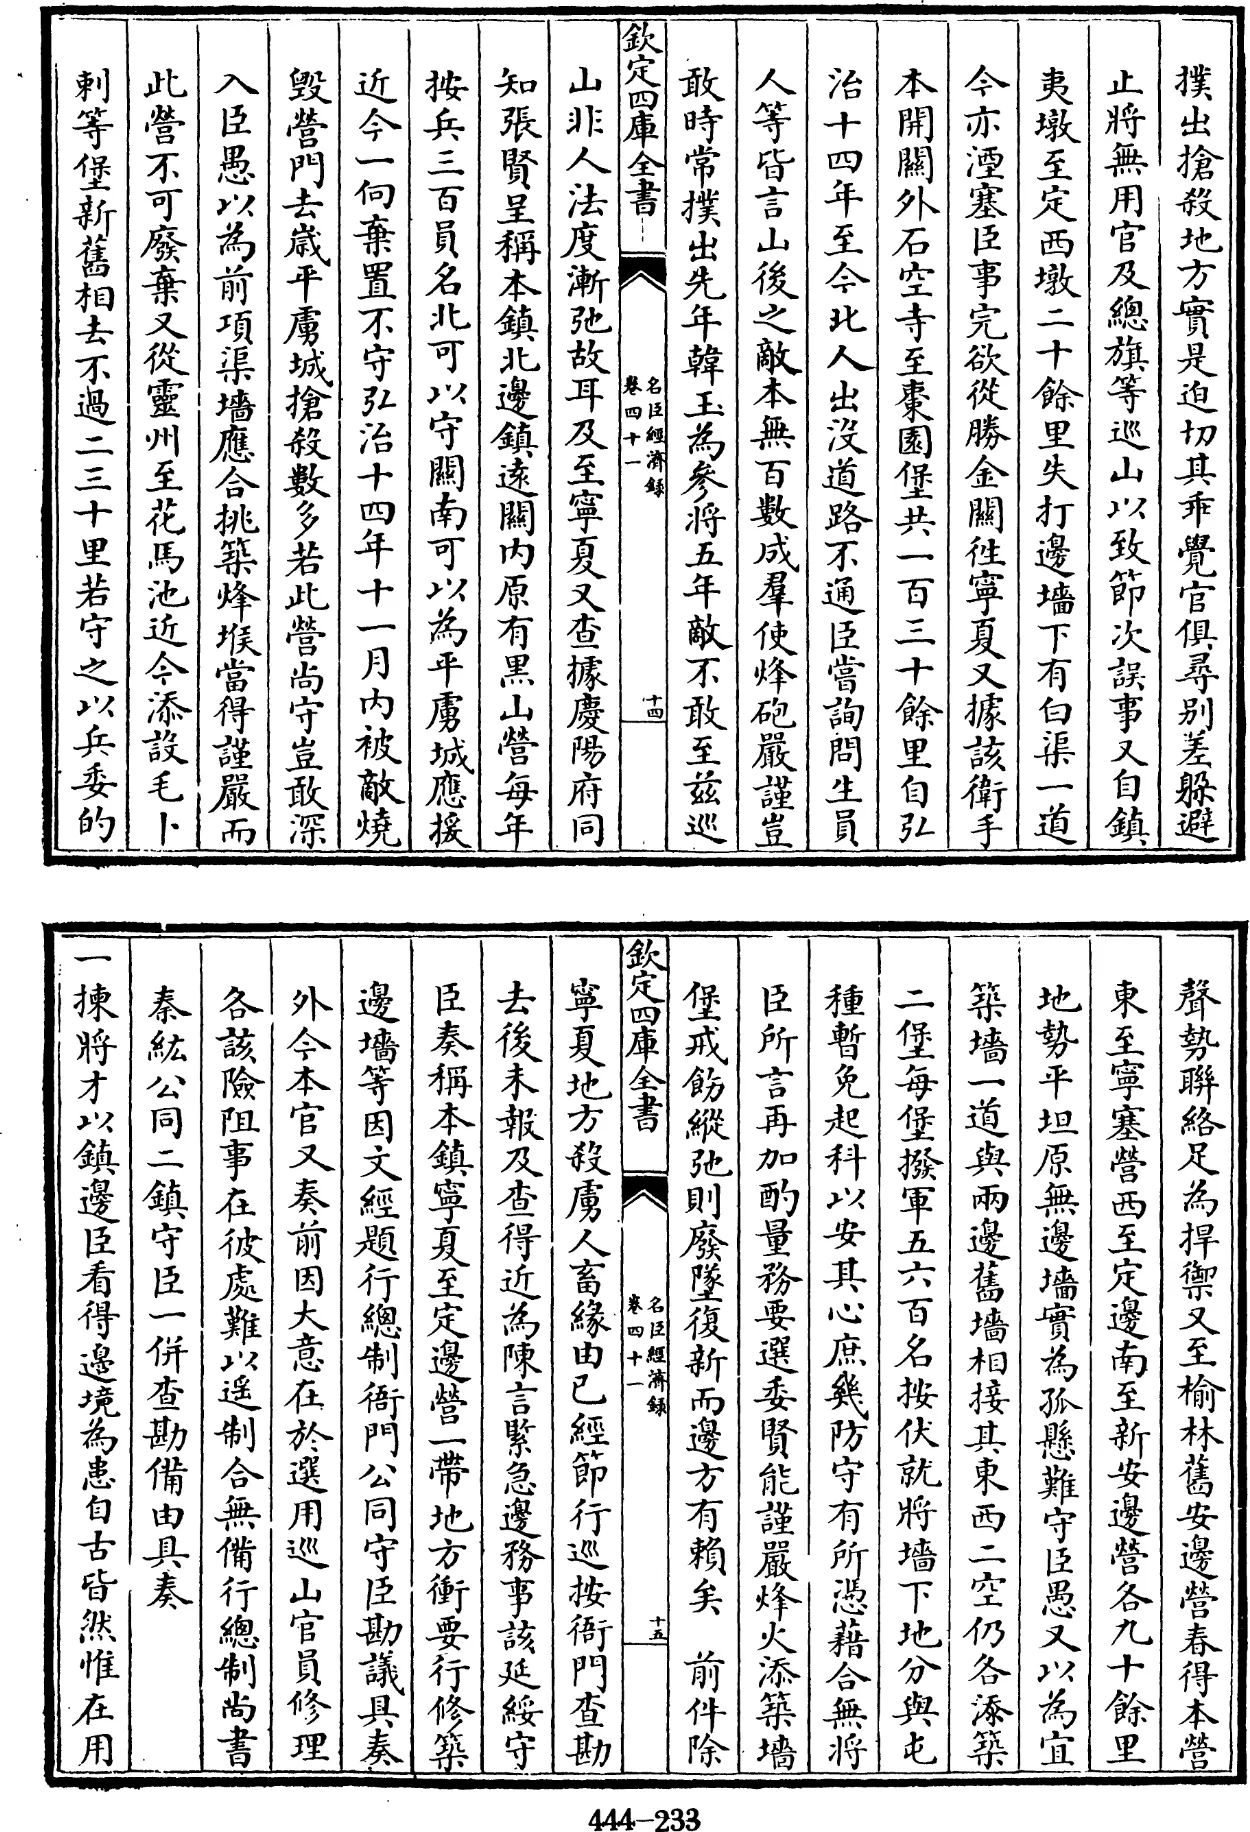 撲出搶殺地方實是迫切其乖覺官俱尋别差躲避
止將無用官及總旗等巡山以致節次誤事又自鎮
夷墩至定西墩二十餘里失打邊墻下有白渠一道
今亦湮塞臣事完欲從勝金關徃寧夏又據該衛手
本開關外石空寺至棗園堡共一百三十餘里自弘
治十四年至今北人出没道路不通臣嘗詢問生員
人等皆言山後之敵本無百數成羣使烽砲嚴謹豈
敢時常撲出先年韓玉為參將五年敵不敢至兹巡
欽定四庫全書
名臣經濟録
卷四十一
十四
山非人法度漸弛故耳及至寧夏又查據慶陽府同
知張賢呈稱本鎮北邊鎮遠關内原有黑山營每年
按兵三百員名北可以守關南可以為平虜城應援
近今一向棄置不守弘治十四年十一月内被敵燒
毁營門去歲平虜城搶殺數多若此營尚守豈敢深
入臣愚以為前項渠墻應合挑築烽堠當得謹嚴而
此營不可廢棄又從靈州至花馬池近今添設毛卜
剌等堡新舊相去不過二三十里若守之以兵委的
聲勢聯絡足為捍禦又至榆林舊安邊營春得本營
東至寧塞營西至定邊南至新安邊營各九十餘里
地勢平坦原無邊墻實為孤懸難守臣愚又以為宜
築墻一道與兩邊舊墻相接其東西二空仍各添築
二堡每堡撥軍五六百名按伏就將墻下地分與屯
種暫免起科以安其心庶幾防守有所憑藉合無將
臣所言再加酌量務要選委賢能謹嚴烽火添築墻
堡戒飭縱弛則廢墜復新而邊方有賴矣　前件除
欽定四庫全書
名臣經濟録
卷四十一
十五
寧夏地方殺虜人畜緣由已經節行巡按衙門查勘
去後未報及查得近為陳言緊急邊務事該延綏守
臣奏稱本鎮寧夏至定邊營一帶地方衝要行修築
邊墻等因文經題行總制衙門公同守臣勘議具奏
外今本官又奏前因大意在於選用巡山官員修理
各該險阻事在彼處難以遥制合無備行總制尚書
秦紘公同二鎮守臣一併查勘備由具奏
一揀將才以鎮邊臣看得邊境為患自古皆然惟在用
444-233